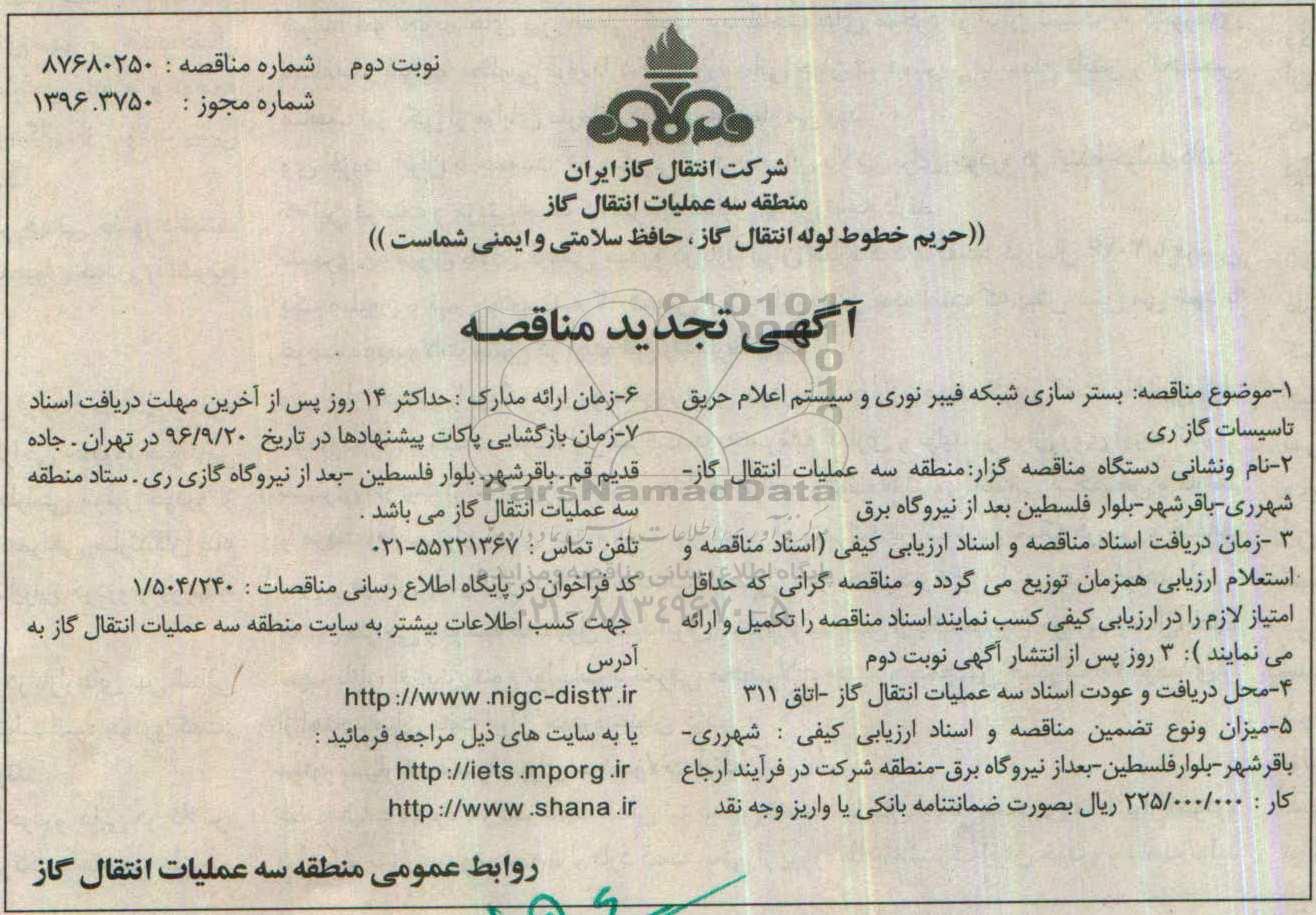 نوبت دوم شماره مناقصه : ۸۷۶۸۰۲۵۰
شماره مجوز : ۱۳۹۶.۳۷۵۰
شرکت انتقال گاز ایران
منطقه سه عملیات انتقال گاز
((حریم خطوط لوله انتقال گاز ، حافظ سلامتی و ایمنی شماست ))
آگهی تجدید مناقصه
۱-موضوع مناقصه: بستر سازی شبکه فیبر نوری و سیستم اعلام حریق
تاسیسات گاز ری
۲-نام ونشانی دستگاه مناقصه گزار:منطقه سه عملیات انتقال گاز-
شهرری-باقرشهر-بلوار فلسطین بعد از نیروگاه برق
۳ -زمان دریافت اسناد مناقصه و اسناد ارزیابی کیفی (اسناد مناقصه و
استعلام ارزیابی همزمان توزیع می گردد و مناقصه گرانی که حداقل
امتیاز لازم را در ارزیابی کیفی کسب نمایند اسناد مناقصه را تکمیل و ارائه
می نمایند ): ۳ روز پس از انتشار آگهی نوبت دوم
۴-محل دریافت و عودت اسناد سه عملیات انتقال گاز -اتاق ۳۱۱
۵-میزان ونوع تضمین مناقصه و اسناد ارزیابی کیفی : شهرری-
باقرشهر-بلوارفلسطین-بعداز نیروگاه برق-منطقه شرکت در فرآیند ارجاع
کار : ۲۲۵/۰۰۰/۰۰۰ ریال بصورت ضمانتنامه بانکی یا واریز وجه نقد
۶-زمان ارائه مدارک :حداکثر ۱۴ روز پس از آخرین مهلت دریافت اسناد
۷-زمان بازگشایی پاکات پیشنهادها در تاریخ ۹۶/۹/۲۰ در تهران ـ جاده
قدیم قم ـ باقرشهر ـ بلوار فلسطین -بعد از نیروگاه گازی ری ـ ستاد منطقه
سه عملیات انتقال گاز می باشد .
تلفن تماس : ۵۵۲۲۱۳۶۷-۰۲۱
کد فراخوان در پایگاه اطلاع رسانی مناقصات : ۱/۵۰۴/۲۴۰
جهت کسب اطلاعات بیشتر به سایت منطقه سه عملیات انتقال گاز به
آدرس
http ://www .nigc-dist۳.ir
یا به سایت های ذیل مراجعه فرمائید :
http ://iets .mporg .ir
http ://www .shana .ir
روابط عمومی منطقه سه عملیات انتقال گاز
ParsNamadData
پایگاه اطلاع رسانی مناقصه و مزایده
۰۲۱-۸۸۳۴۹۶۷۰-۵